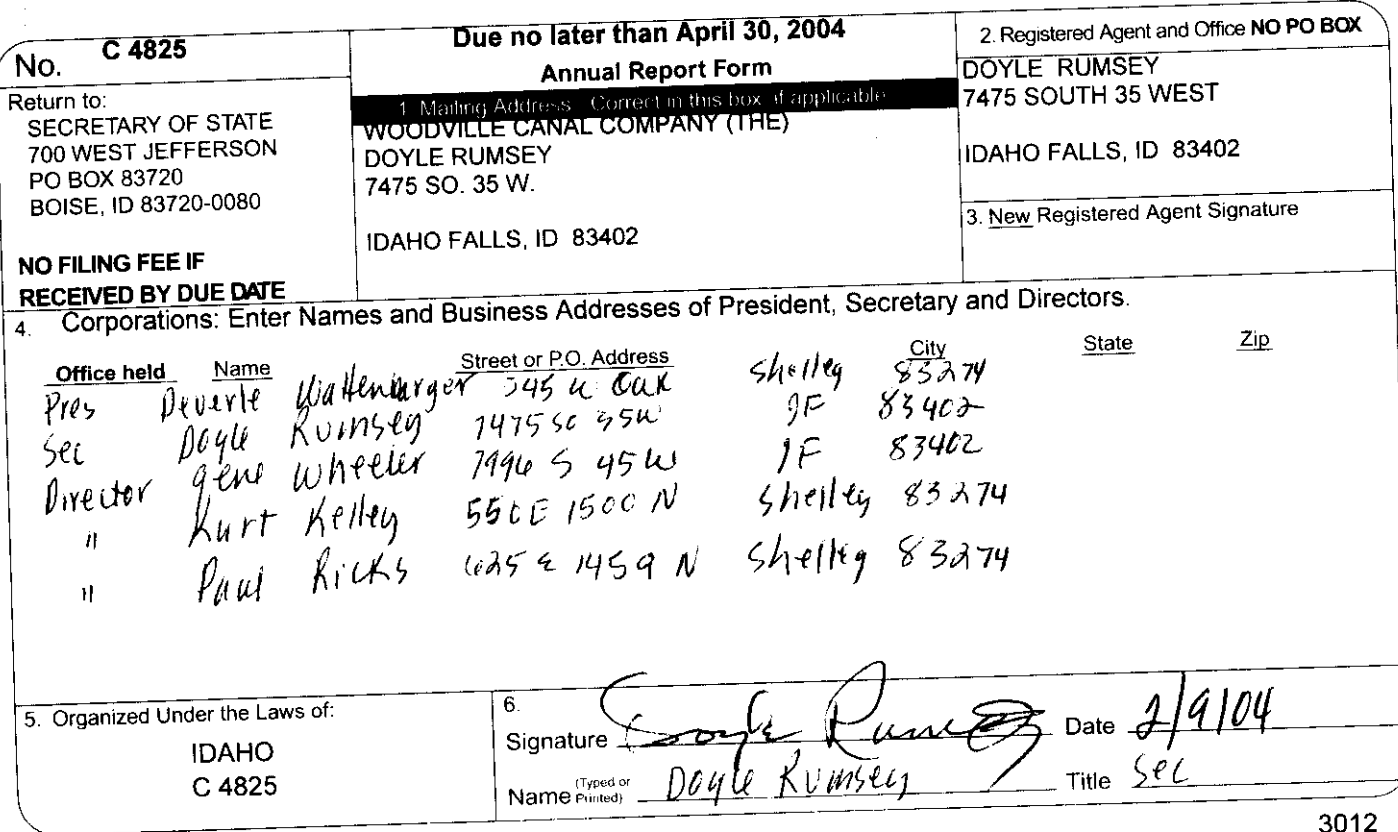 No. C 4825
Return to:
SECRETARY OF STATE
700 WEST JEFFERSON
PO BOX 83720
BOISE, ID 83720-0080
NO FILING FEE IF
RECEIVED BY DUE DATE
Due no later than April 30, 2004
Annual Report Form
1. Mailing Address Correct in this box if applicable
WOODVILLE CANAL COMPANY (THE)
DOYLE RUMSEY
7475 SO. 35 W.
IDAHO FALLS, ID 83402
2. Registered Agent and Office NO PO BOX
DOYLE RUMSEY
7475 SOUTH 35 WEST
IDAHO FALLS, ID 83402
3. New Registered Agent Signature
4. Corporations: Enter Names and Business Addresses of President, Secretary and Directors.
Office held Name Street or P.O. Address City State Zip
Pres Deverle Wattenbarger Oak Shelley 83274
Sec Doyle Rumsey 7475 So 35W IF 83402
Director Gene Wheeler 7996 S 45 W IF 83402
" Kurt Kelley 550 E 1500 N Shelley 83274
" Paul Ricks 625 E 1459 N Shelley 83274
5. Organized Under the Laws of:
IDAHO
C 4825
6.
Signature Doyle Rumsey Date 2/9/04
Name (Typed or Printed) Doyle Rumsey Title Sec
3012